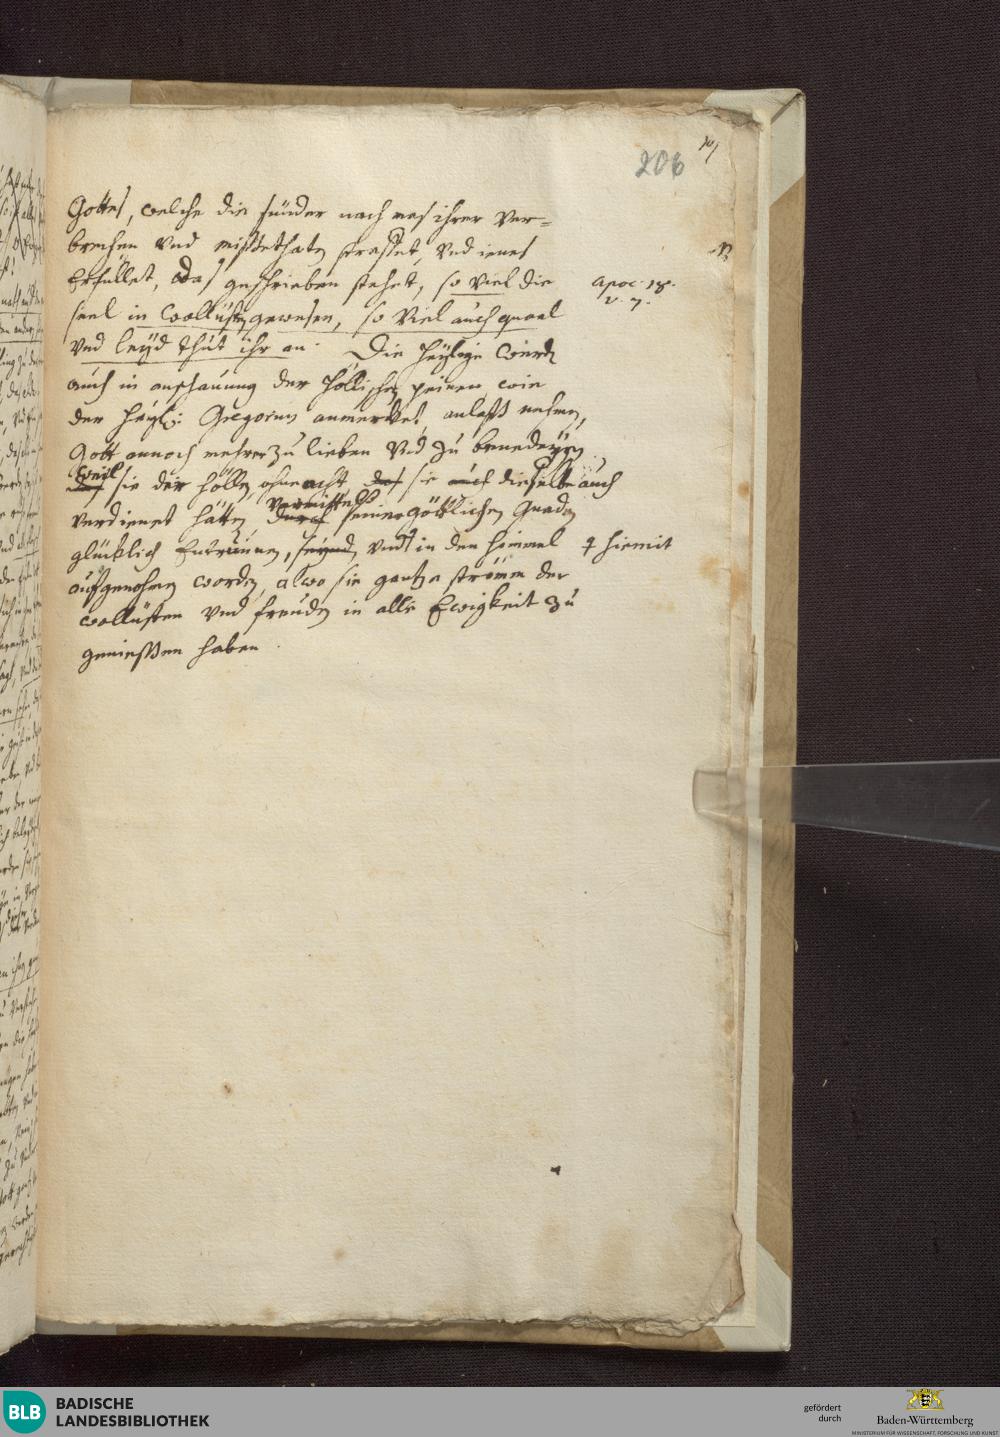 206
Gottes, welche die sünder nach mas ihrer ver-
brechen und missethaten straffet, und ienes
erfüllet, das geschrieben stehet, so viel die
Apoc. 18.
v. 7.
seel in wollüsten gewesen, so viel auch quaal
und leyd thut ihr an. Die heylige werden
auch in anschauung der höllischen peinen wie
der heyl: Gregorius anmerket, anlass nehmen,
Gott annoch mehrer zu lieben und zu benedeyen,
weil
das sie der höllen, ohneracht das sie auch dieselbe auch
vermittels
verdienet hätten, durch seiner göttlichen Gnaden
glücklich entrunnen, seynd, und in den himmel hiemit
aufgenohmen worden, alwo sie gantze ströme der
wollüsten und freuden in alle Ewigkeit zu
geniessen haben.
BLB
BADISCHE
LANDESBIBLIOTHEK
gefördert
durch
Baden-Württemberg
MINISTERIUM FÜR WISSENSCHAFT, FORSCHUNG UND KUNST